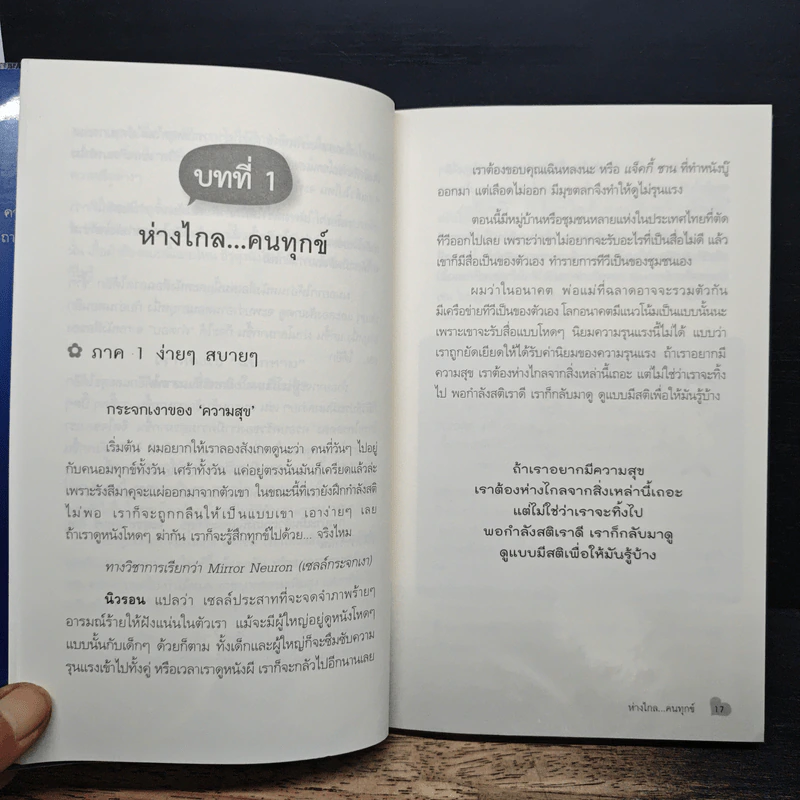 บทที่ 1
ห่างไกล...คนทุกข์
ภาค 1 ง่ายๆ สบายๆ
กระจกเงาของ 'ความสุข'
เริ่มต้น ผมอยากให้เราลองสังเกตดูนะว่า คนที่วันๆ ไปอยู่
กับคนอมทุกข์ทั้งวัน เศร้าทั้งวัน แค่อยู่ตรงนั้นมันก็เครียดแล้วล่ะ
เพราะรังสีมาคุจะแผ่ออกมาจากตัวเขา ในขณะนี้ที่เรายังฝึกกำลังสติ
ไม่พอ เราก็จะถูกกลืนให้เป็นแบบเขา เอาง่ายๆ เลย
ถ้าเราดูหนังโหดๆ ฆ่ากัน เราก็จะรู้สึกทุกข์ไปด้วย... จริงไหม
ทางวิชาการเรียกว่า Mirror Neuron (เซลล์กระจกเงา)
นิวรอน แปลว่า เซลล์ประสาทที่จะจดจำภาพร้ายๆ
อารมณ์ร้ายให้ฝังแน่นในตัวเรา แม้จะมีผู้ใหญ่อยู่ดูหนังโหดๆ
แบบนั้นกับเด็กๆ ด้วยก็ตาม ทั้งเด็กและผู้ใหญ่ก็จะซึมซับความ
รุนแรงเข้าไปทั้งคู่ หรือเวลาเราดูหนังผี เราก็จะกลัวไปอีกนานเลย
เราต้องขอบคุณเฉินหลงนะ หรือ แจ็คกี้ ชาน ที่ทำหนังบู๊
ออกมา แต่เลือดไม่ออก มีมุขตลกจึงทำให้ดูไม่รุนแรง
ตอนนี้มีหมู่บ้านหรือชุมชนหลายแห่งในประเทศไทยที่ตัด
ทีวีออกไปเลย เพราะว่าเขาไม่อยากจะรับอะไรที่เป็นสื่อไม่ดี แล้ว
เขาก็มีสื่อเป็นของตัวเอง ทำรายการทีวีเป็นของชุมชนเอง
ผมว่าในอนาคต พ่อแม่ที่ฉลาดอาจจะรวมตัวกัน
มีเครือข่ายทีวีเป็นของตัวเอง โลกอนาคตมีแนวโน้มเป็นแบบนั้นนะ
เพราะเขาจะรับสื่อแบบโหดๆ นิยมความรุนแรงนี้ไม่ได้ แบบว่า
เราถูกยัดเยียดให้ได้รับค่านิยมของความรุนแรง ถ้าเราอยากมี
ความสุข เราต้องห่างไกลจากสิ่งเหล่านี้เถอะ แต่ไม่ใช่ว่าเราจะทิ้ง
ไป พอกำลังสติเราดี เราก็กลับมาดู ดูแบบมีสติเพื่อให้มันรู้บ้าง
ถ้าเราอยากมีความสุข
เราต้องห่างไกลจากสิ่งเหล่านี้เถอะ
แต่ไม่ใช่ว่าเราจะทิ้งไป
พอกำลังสติเราดี เราก็กลับมาดู
ดูแบบมีสติเพื่อให้มันรู้บ้าง
ห่างไกล...คนทุกข์ 17